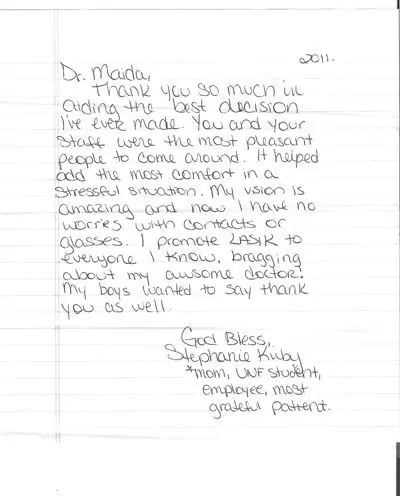 2011.
Dr. Maida,
Thank you so much in
aiding the best decision
I've ever made. You and your
staff were the most pleasant
people to come around. It helped
add the most comfort in a
stressful situation. My vision is
amazing and now I have no
worries with contacts or
glasses. I promote LASIK to
everyone I know, bragging
about my awsome doctor!
My boys wanted to say thank
you as well.
God Bless,
Stephanie Kirby
*mom, UNF student,
employee, most
grateful patient.